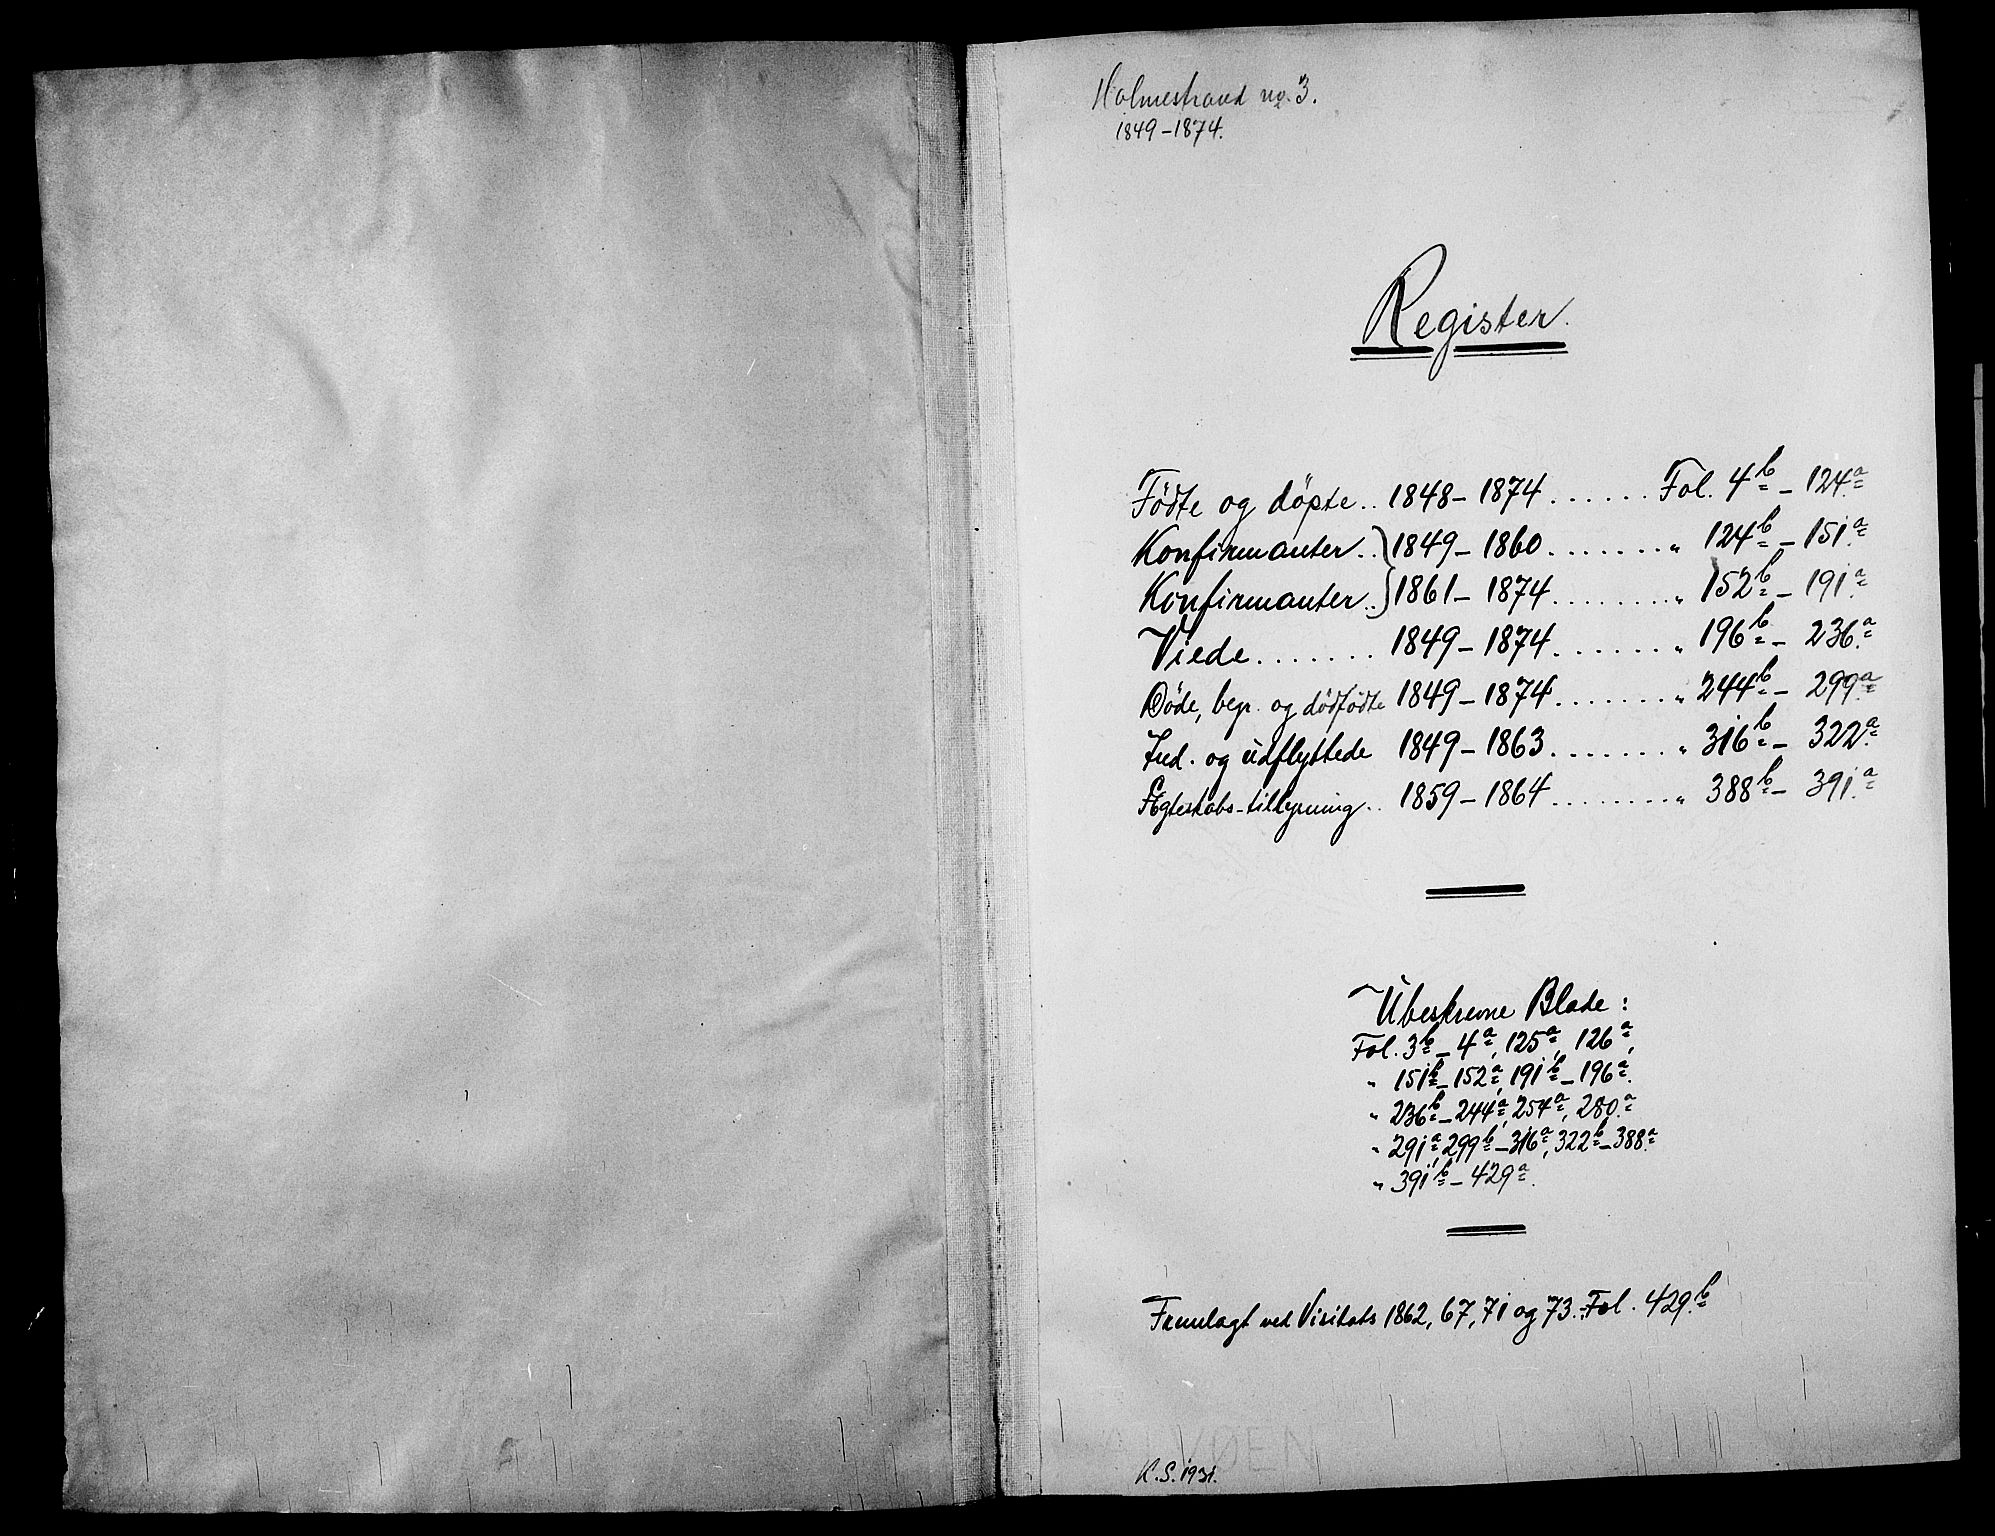 Holmestrand no. 3.
1849-1874.
Register.
Fødte og døpte.. 1848-1874...... Fol. 4b - 124a
Konfirmanter..} 1849-1860....... " 124b - 151a
Konfirmanter..} 1861-1874........ " 152b - 191a
Viede....... 1849-1874....... " 196b - 236a
Døde, begr. og dødfødte 1849-1874....... " 244b - 299a
Ind. og udflyttede 1849-1863....... " 316b - 322a
Ægteskabs-tillysning.. 1859-1864........ " 388b - 391a
Ubeskrevne Blade:
Fol. 3b - 4a, 125a, 126a,
" 151b - 152a, 191b - 196a.
" 236b - 244a, 254a, 280a
" 291a, 299b - 316a, 322b - 388a
" 391b - 429a.
Fremlagt ved Visitats 1862, 67, 71 og 73. Fol. 429b
K.S. 1931.